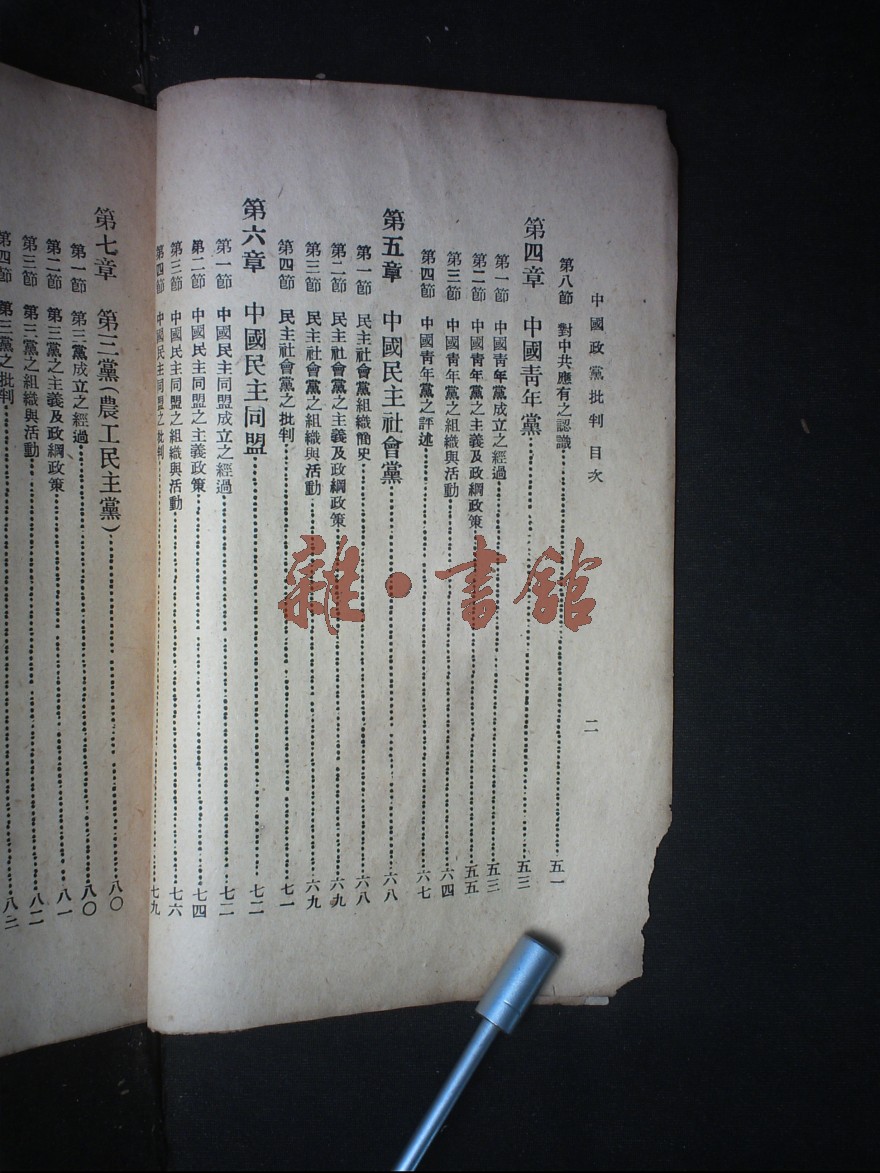 中國政黨批判 目次
二
第八節 對中共應有之認識 五一
第四章 中國青年黨 五三
第一節 中國青年黨成立之經過 五三
第二節 中國青年黨之主義及政綱政策 五五
第三節 中國青年黨之組織與活動 六四
第四節 中國青年黨之評述 六七
第五章 中國民主社會黨 六八
第一節 民主社會黨組織簡史 六八
第二節 民主社會黨之主義及政綱政策 六九
第三節 民主社會黨之組織與活動 六九
第四節 民主社會黨之批判 七一
第六章 中國民主同盟 七二
第一節 中國民主同盟成立之經過 七二
第二節 中國民主同盟之主義政策 七四
第三節 中國民主同盟之組織與活動 七六
第四節 中國民主同盟之批判 七九
第七章 第三黨(農工民主黨) 八〇
第一節 第三黨成立之經過 八〇
第二節 第三黨之主義及政綱政策 八一
第三節 第三黨之組織與活動 八二
第四節 第三黨之批判
雜·書館